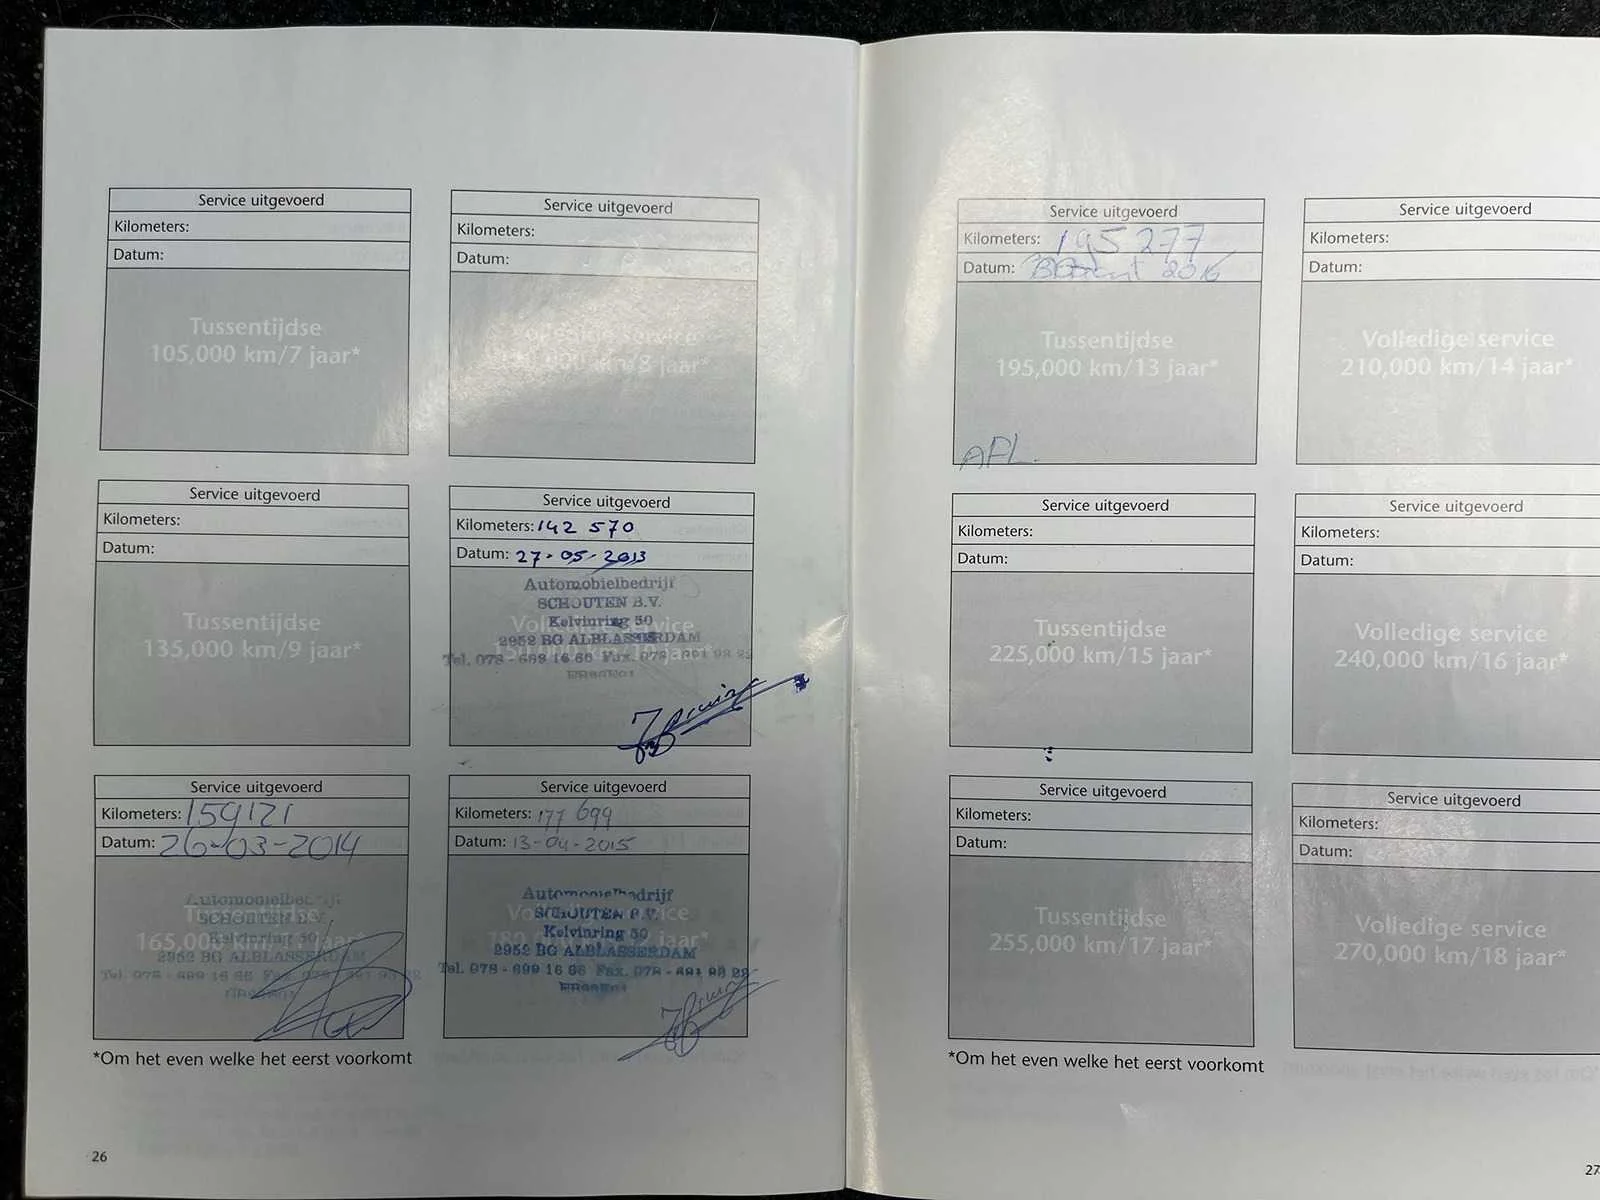 Service uitgevoerd
Kilometers:
Datum:
Tussentijdse
105,000 km/7 jaar*
Service uitgevoerd
Kilometers:
Datum:
Service
km/8 jaar*
Service uitgevoerd
Kilometers:
Datum:
Tussentijdse
135,000 km/9 jaar*
Service uitgevoerd
Kilometers: 142 570
Datum: 27-05-2013
Automobielbedrijf
SCHOUTEN B.V.
Kelvinring 50
2952 BG ALBLASSERDAM
Tel. 078 - 699 16 66 Fax. 078 - 691 98 28
Service uitgevoerd
Kilometers: 159121
Datum: 26-03-2014
Tussentijdse
165,000 km/11 jaar*
Automobielbedrijf
SCHOUTEN B.V.
Kelvinring 50
2952 BG ALBLASSERDAM
Tel. 078 - 699 16 66 Fax. 078 - 691 98 28
Service uitgevoerd
Kilometers: 177 699
Datum: 13-04-2015
Automobielbedrijf
SCHOUTEN B.V.
Kelvinring 50
2952 BG ALBLASSERDAM
Tel. 078 - 699 16 66 Fax. 078 - 691 98 28
*Om het even welke het eerst voorkomt
26
Service uitgevoerd
Kilometers: 195277
Datum: 2016
Tussentijdse
195,000 km/13 jaar*
AFL.
Service uitgevoerd
Kilometers:
Datum:
Volledige service
210,000 km/14 jaar*
Service uitgevoerd
Kilometers:
Datum:
Tussentijdse
225,000 km/15 jaar*
Service uitgevoerd
Kilometers:
Datum:
Volledige service
240,000 km/16 jaar*
Service uitgevoerd
Kilometers:
Datum:
Tussentijdse
255,000 km/17 jaar*
Service uitgevoerd
Kilometers:
Datum:
Volledige service
270,000 km/18 jaar*
*Om het even welke het eerst voorkomt
27